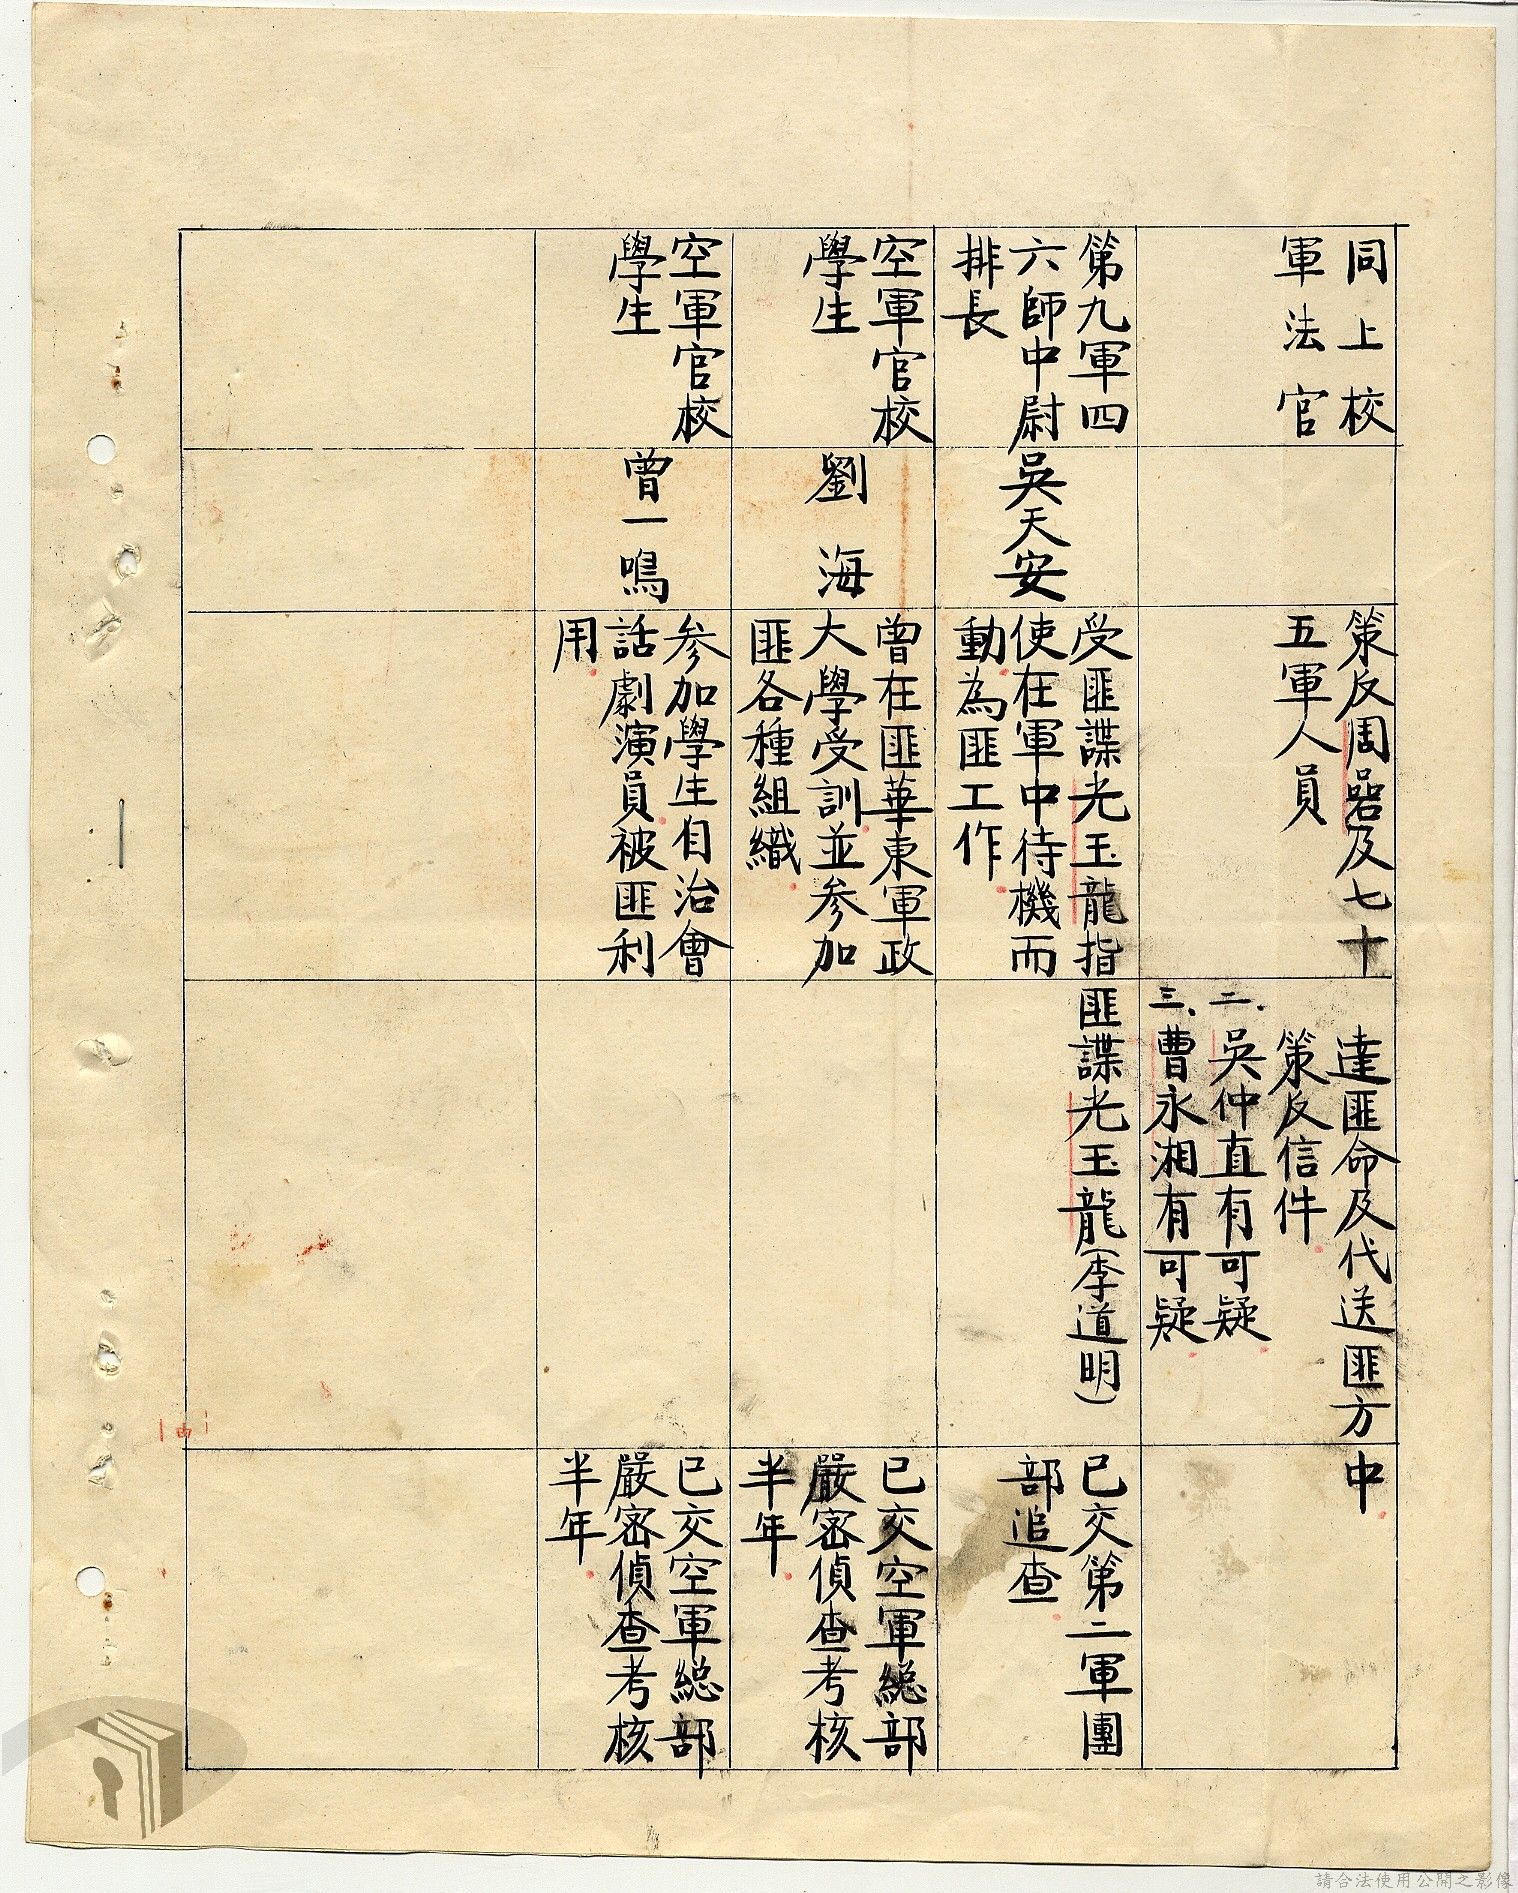 同上校
軍法官
策反周嵒及七十
五軍人員
達匪命及代送匪方
策反信件
二、吳仲直有可疑
三、曹永湘有可疑
中
第九軍四
六師中尉
排長
吳天安
受匪諜光玉龍指
使在軍中待機而
動為匪工作
匪諜光玉龍(李道明)
已交第二軍團
部追查
空軍官校
學生
劉海
曾在匪華東軍政
大學受訓並參加
匪各種組織
已交空軍總部
嚴密偵查考核
半年
空軍官校
學生
曾一鳴
參加學生自治會
話劇演員被匪利
用
已交空軍總部
嚴密偵查考核
半年
請合法使用公開之影像